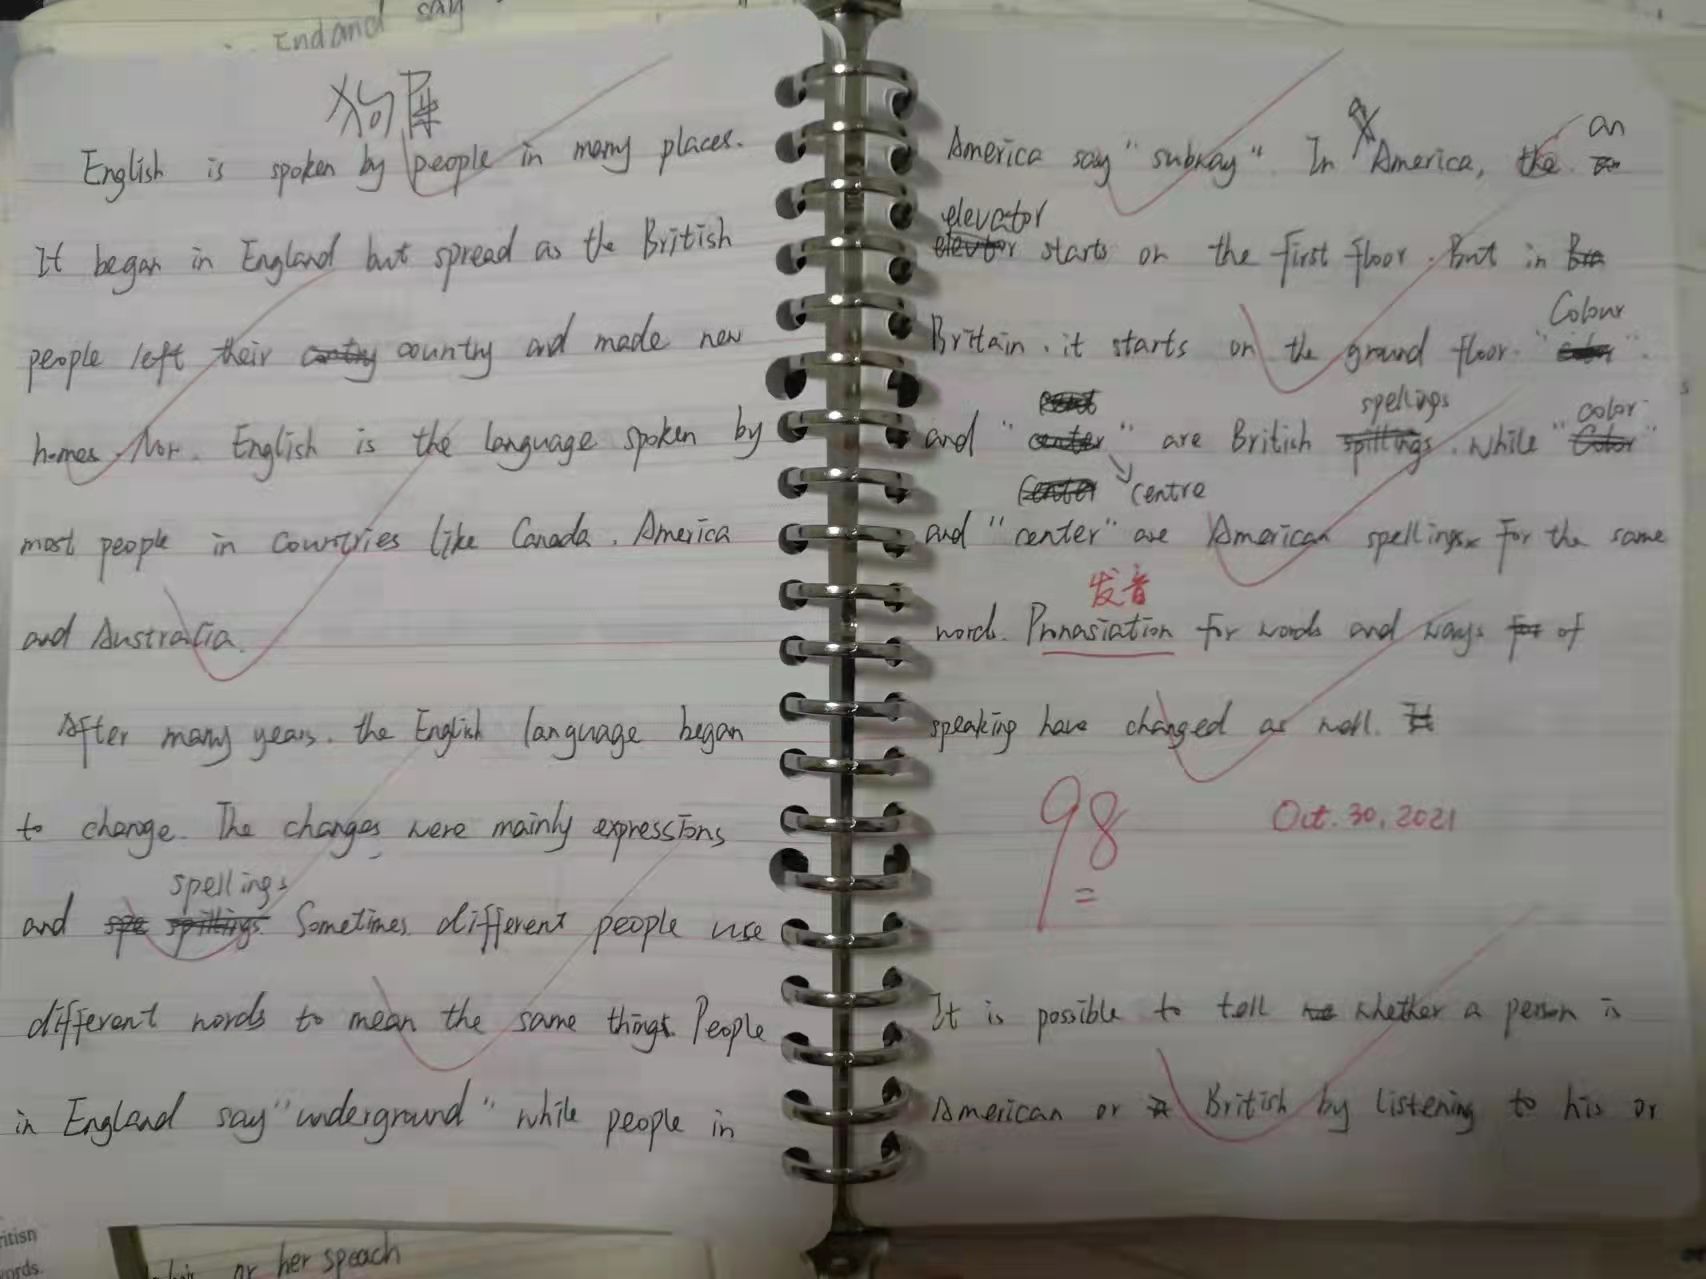 say
狗屎
English is spoken by people in many places.
It began in England but spread as the British
people left their country and made new
homes. Now. English is the language spoken by
most people in countries like Canada. America
and Australia.
After many years. the English language began
to change. The changes were mainly expressions
spellings
and Sometimes different people use
different words to mean the same things. People
in England say "underground" while people in
America say "subway". In America, the an
elevator
starts on the first floor. But in
Britain. it starts on the ground floor. "Colour"
and " " are British spellings. while "color"
centre
and "center" are American spellings. For the same
发音
words. Pronasiation for words and ways of
speaking have changed as well. It
98
Oct. 30, 2021
It is possible to tell whether a person is
American or British by listening to his or
ritish
words.
or her speach